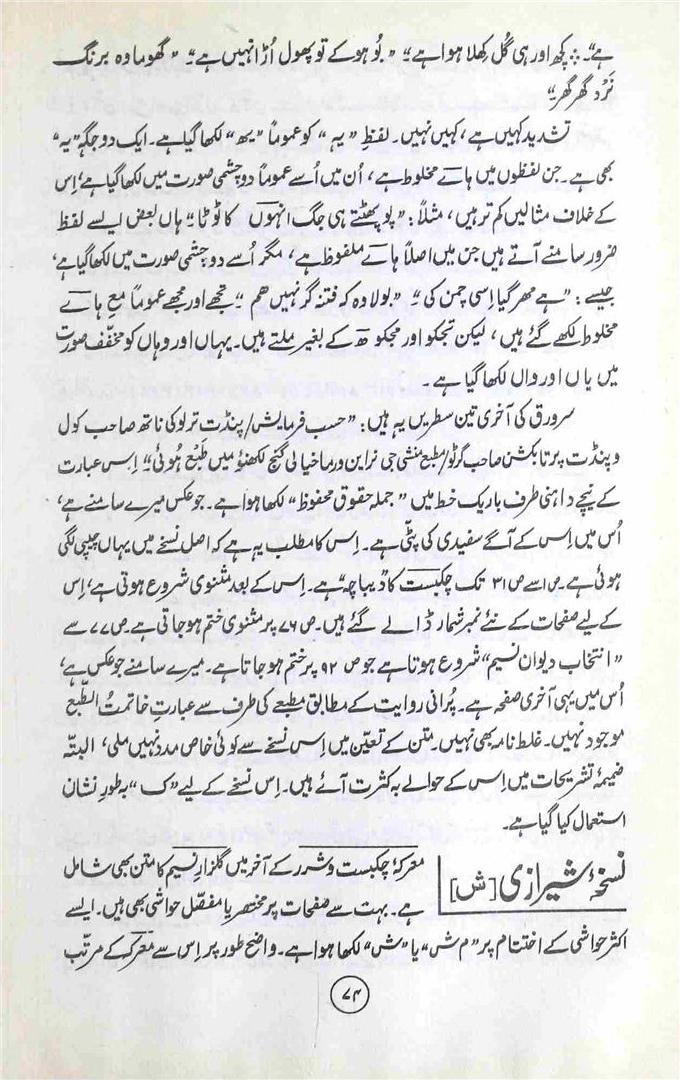 ہے“۔ ؞ کچھ اور ہی گُل کِھلا ہوا ہے“۔ ”بُو ہو کے تو پھول اُڑا نہیں ہے“۔ ”گھوما وہ برنگ
نَرْد گھر گھر“
تشدید کہیں ہے، کہیں نہیں۔ لفظ ”یہ“ کو عموماً ”یھ“ لکھا گیا ہے۔ ایک دو جگہ ”یہ“
بھی ہے۔ جن لفظوں میں ہاے مخلوط ہے، اُن میں اُسے عموماً دو چشمی صورت میں لکھا گیا ہے، اِس
کے خلاف مثالیں کم تر ہیں، مثلاً: ”پو پھٹتے ہی جگ انہوں کا ٹوٹا“۔ ہاں بعض ایسے لفظ
ضرور سامنے آتے ہیں جن میں اصلاً ہاے ملفوظ ہے، مگر اُسے دو چشمی صورت میں لکھا گیا ہے،
جیسے: ”ہے مھر گیا اِسی چمن کی“۔ ”بولا وہ کہ فتنہ گر نہیں ھم“۔ تجھے اور مجھے عموماً مع ہاے
مخلوط لکھے گئے ہیں، لیکن تجکو اور مجکو ھ کے بغیر ملتے ہیں۔ یہاں اور وہاں کو مخفّف صورت
میں یاں اور واں لکھا گیا ہے۔
سرورق کی آخری تین سطریں یہ ہیں: ”حسب فرمایش/پنڈت ترلوکی ناتھ صاحب کول
و پنڈت پرتاب کشن صاحب گرٹو/مطبع منشی جی نراین ورما خیالی گنج لکھنؤ میں طَبْع ہُوئی“۔ اِس عبارت
کے نیچے داہنی طرف باریک خط میں ”جملہ حقوق محفوظ“ لکھا ہوا ہے۔ جو عکس میرے سامنے ہے،
اُس میں اِس کے آگے سفیدی کی پٹّی ہے۔ اِس کا مطلب یہ ہے کہ اصل نسخے میں یہاں چیپی لگی
ہوئی ہے۔ ص ا سے ص ۳۱ تک چکبست کا ”دیباچہ“ ہے۔ اِس کے بعد مثنوی شروع ہوتی ہے، اِس
کے لیے صفحات کے نئے نمبر شمار ڈالے گئے ہیں۔ ص ۷۶ پر مثنوی ختم ہو جاتی ہے۔ ص ۷۷ سے
”انتخاب دیوان نسیم“ شروع ہوتا ہے جو ص ۹۲ پر ختم ہو جاتا ہے۔ میرے سامنے جو عکس ہے،
اُس میں یہی آخری صفحہ ہے۔ پُرانی روایت کے مطابق مطبعے کی طرف سے عبارتِ خاتمتُ الطّبع
موجود نہیں۔ غلط نامہ بھی نہیں۔ متن کے تعیّن میں اِس نسخے سے کوئی خاص مدد نہیں ملی، البتّہ
ضمیمۂ تشریحات میں اِس کے حوالے بہ کثرت آئے ہیں۔ اِس نسخے کے لیے ”ک“ بہ طورِ نشان
استعمال کیا گیا ہے۔
نسخۂ شیرازی [ش]
معرکۂ چکبست و شرر کے آخر میں گلزارِ نسیم کا متن بھی شامل
ہے۔ بہت سے صفحات پر مختصر یا مفصّل حواشی بھی ہیں۔ ایسے
اکثر حواشی کے اختتام پر ”م ش“ یا ”ش“ لکھا ہوا ہے۔ واضح طور پر اِس سے معرکہ کے مرتّب
۷۴